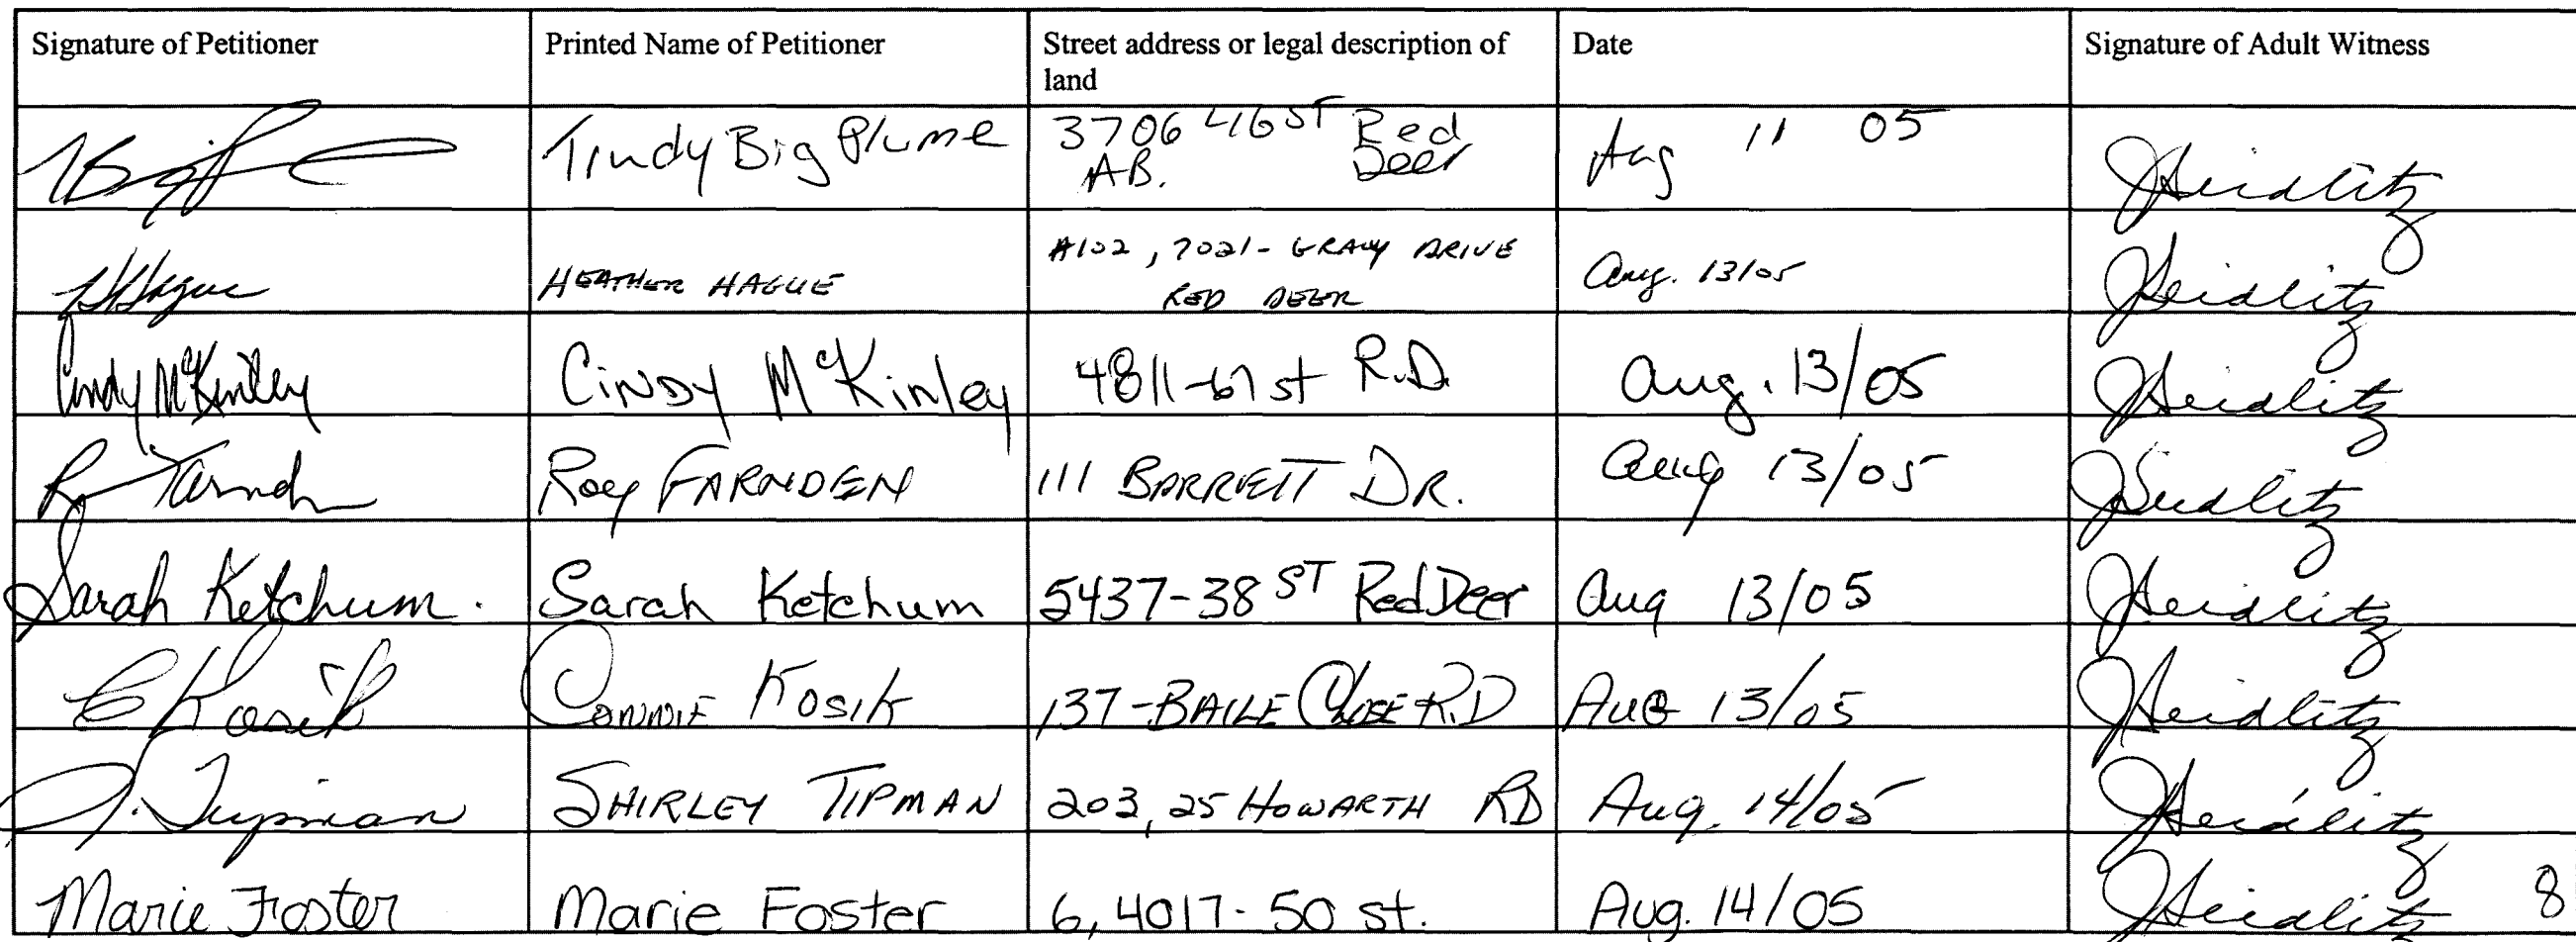 Signature of Petitioner Printed Name of Petitioner Street address or legal description of Date Signature of Adult Witness
land
Trudy Big Plume 3706 46 ST Red Aug 11 05 JHeidlitz
AB. Deer
HHague HEATHER HAGUE #102, 7021- GRAY DRIVE Aug. 13/05 JHeidlitz
RED DEER
Cindy McKinley CINDY McKinley 4811-67 st R.D. Aug. 13/05 JHeidlitz
R Farnden Roy FARNDEN 111 BARRETT DR. Aug 13/05 JHeidlitz
Sarah Ketchum. Sarah Ketchum 5437-38 ST Red Deer Aug 13/05 JHeidlitz
C Kosik CONNIE KOSIK 137-BAILE CLOSE R.D AUG 13/05 JHeidlitz
S. Tipman SHIRLEY TIPMAN 203, 25 HOWARTH RD Aug. 14/05 JHeidlitz
Marie Foster Marie Foster 6, 4017-50 st. Aug. 14/05 JHeidlitz 8